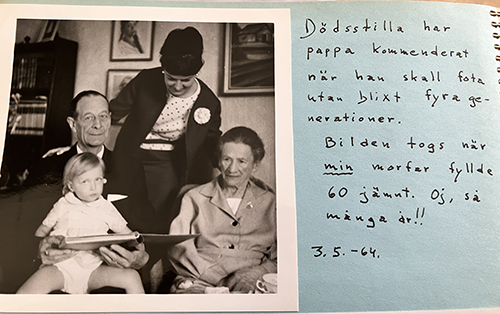 Dödsstilla har
pappa kommenderat
när han skall fota
utan blixt fyra ge-
nerationer.
Bilden togs när
min morfar fyllde
60 jämnt. Oj, så
många år!!
3.5.-64.